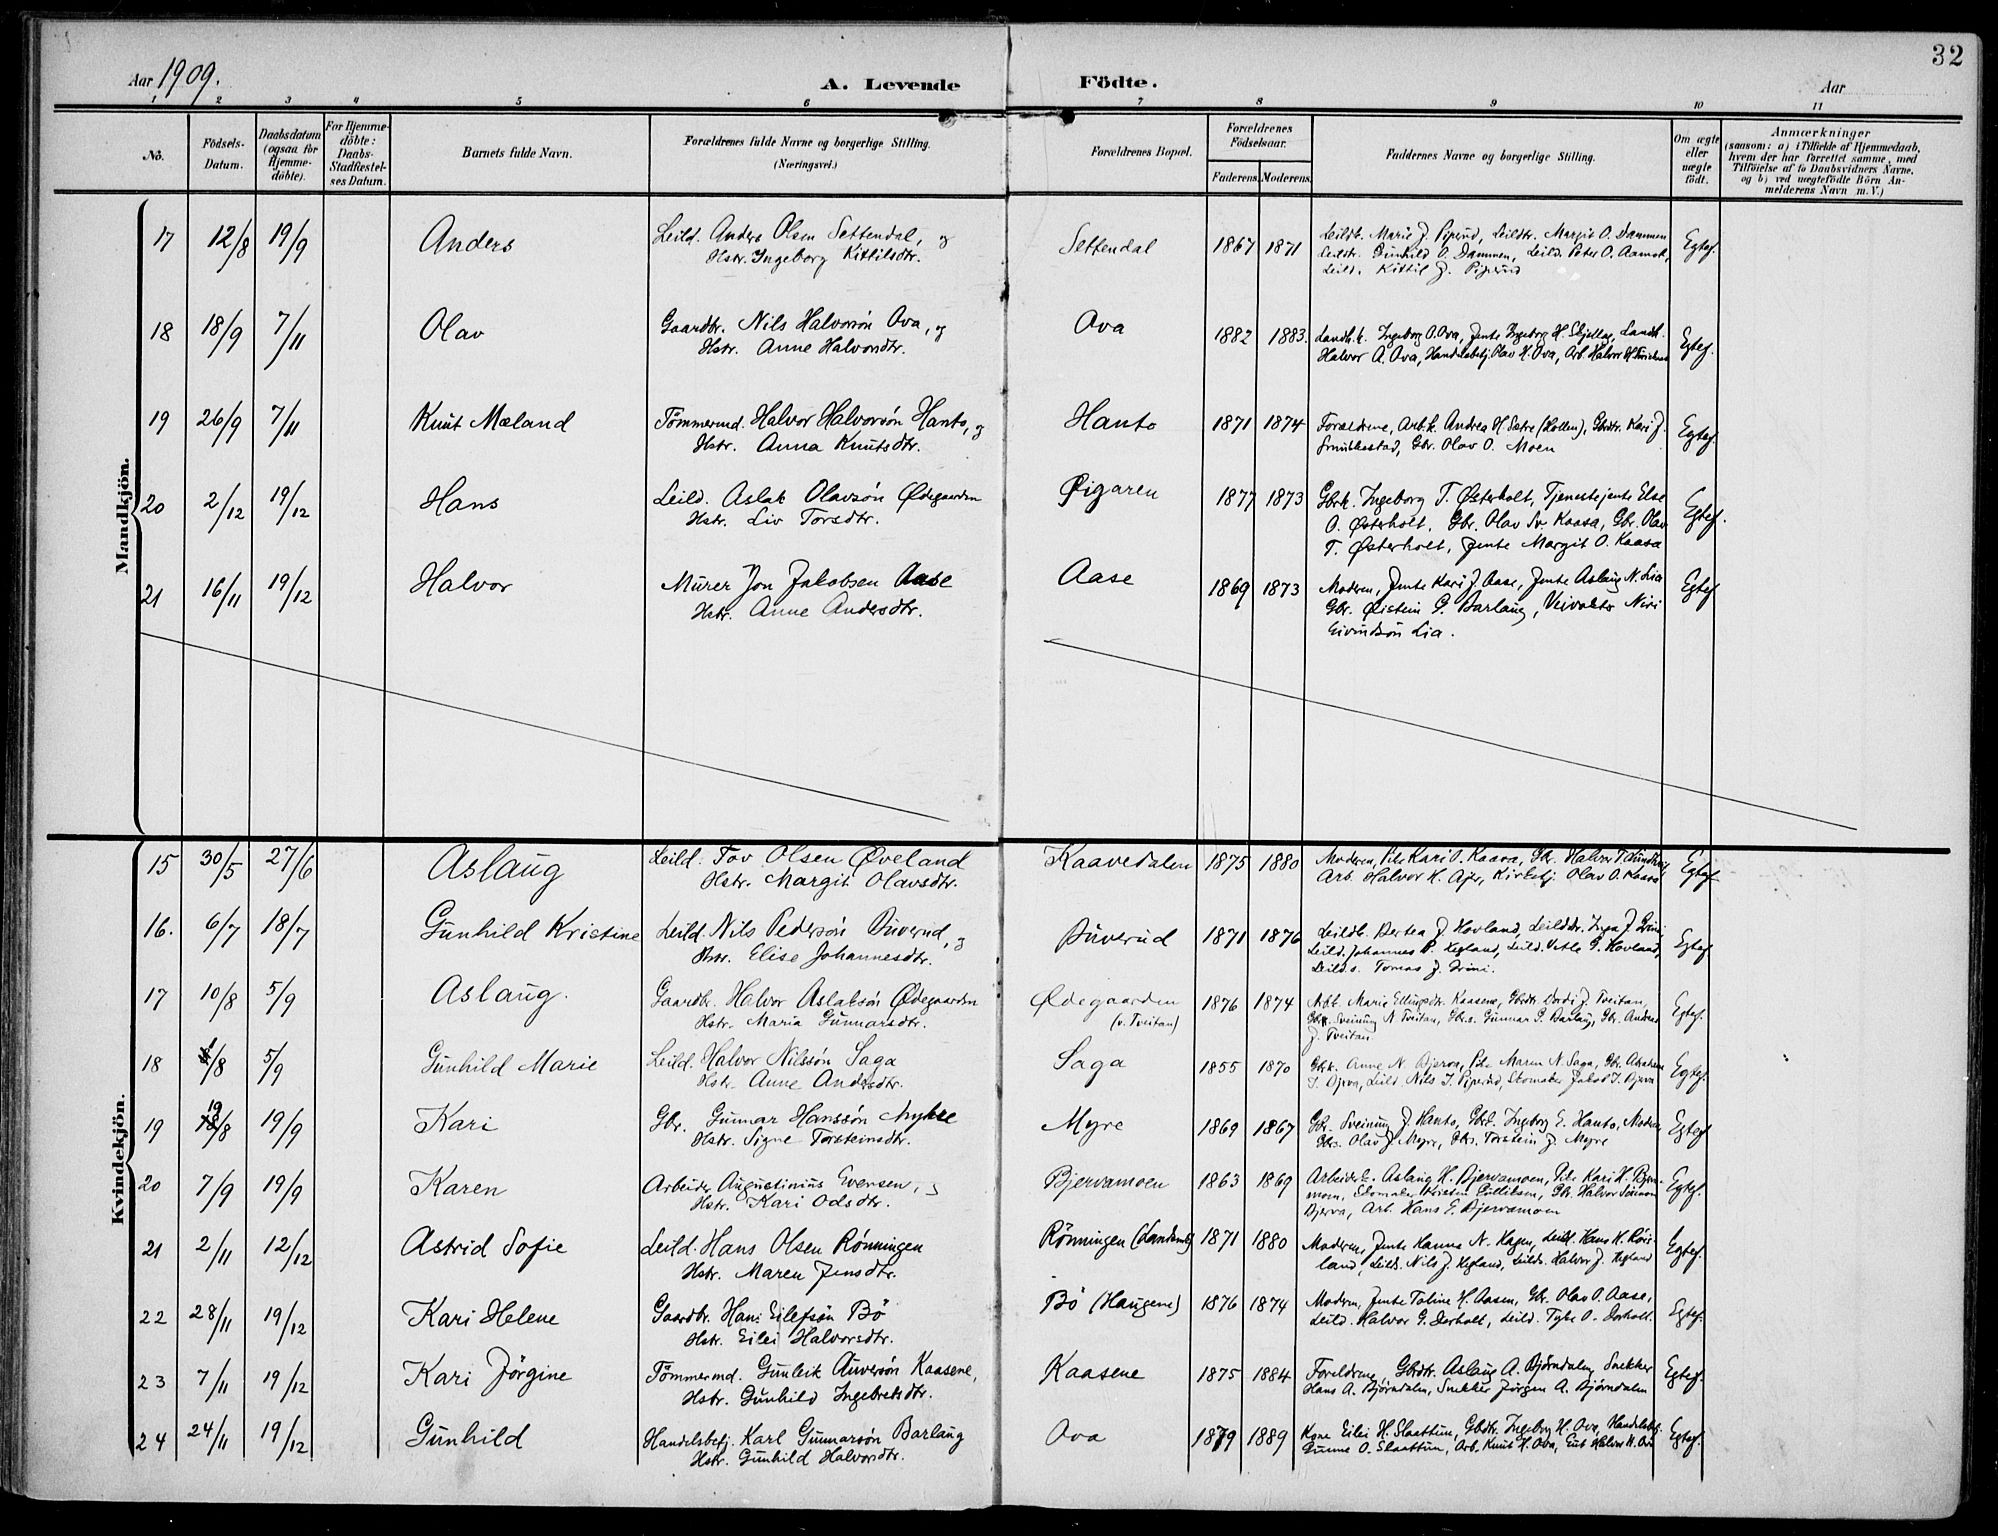 32
Aar 1909. A. Levende Födte. Aar
1 2 3 4 5 6 7 8 9 10 11
No. Födsels-Datum. Daabsdatum (ogsaa for Hjemme-döbte). For Hjemme-döbte: Daabs-Stadfæstel-ses Datum. Barnets fulde Navn. Forældrenes fulde Navne og borgerlige Stilling. (Næringsvei.) Forældrenes Bopæl. Forældrenes Födselsaar. Faderens. Moderens. Faddernes Navne og borgerlige Stilling. Om ægte eller uægte födt. Anmærkninger (saasom: a) i Tilfælde af Hjemmedaab, hvem der har forrettet samme, med Tilföielse af to Daabsvidners Navne, og b) ved uægtefödte Börn An-melderens Navn m. V.)
Mandkjön.
17 12/8 19/9 Anders Leild. Anders Olsen Settendal, og Settendal 1867 1871 Leildk. Marie J. Piperud, Leildtr. Margit O. Dammen Egtef.
Hstr. Ingeborg Kittilsdtr. Leildtr. Gunhild O. Dammen, Leild. Peter O. Aamot,
Leild. Kittil J. Piperud
18 18/9 7/11 Olav Gaardbr. Nils Halvorsön Ova, og Ova 1882 1883. Landh.k. Ingeborg O. Ova, Jente Ingeborg H. Skjelbog, Landh. Egtef.
Hstr. Anne Halvorsdtr. Halvor A. Ova, Handelsbetj. Olav H. Ova, Arb. Halvor H.
19 26/9 7/11 Knut Mæland Tömmermd. Halvor Halvorsön Hanto, og Hanto 1871 1874 Forældrene, Arb.k. Andrea H. Sætre (Hollen), Gbrdtr. Kari J. Egtef.
Hstr. Anna Knutsdtr. Gbr. Olav O. Moen
20 2/12 19/12 Hans Leild. Aslak Olavsön Ødegaarden Øigaren 1877 1873 Gbrk. Ingeborg T. Østerholt, Tjenestejente Else Egtef.
Hstr. Liv Torsdtr. O. Østerholt, Gbr. Olav Sv. Kaasa, Gbr. Olav
T. Østerholt, Jente Margit O. Kaasa
21 16/11 19/12 Halvor Murer Jon Jakobsen Aase Aase 1869 1873 Moderen, Jente Kari J. Aase, Jente Aslaug N. Lia Egtef.
Hstr. Anne Andersdtr. Gbr. Øistein G. Barlaug, Veivokter Niri
Eivindsön Lia.
Kvindekjön.
15 30/5 27/6 Aslaug Leild. Tov Olsen Øveland Kaavedalen 1875 1880 Moderen, Pike Kari O. Kaasa, Gbr. Halvor T. Egtef.
Hstr. Margit Olavsdtr. Arb. Halvor H. Ajer, Kirkebj. Olav O. Kaasa
16. 6/7 18/7 Gunhild Kristine Leild. Nils Pedersön Buverud, og Buverud 1871 1876 Leildk. Bertea J. Hovland, Leilddr. Inga J. Egtef.
Hstr. Elise Johannesdtr. Leild. Johannes P. Hegland, Leild. Vetle G. Hovland,
Leilds. Tomas J.
17 10/8 5/9 Aslaug. Gaardbr. Halvor Aslaksön Ødegaarden Ødegaarden 1876 1874 Marie Ellingsdtr. Kaasene, Gbrdtr. Dordi J. Tveitan, Egtef.
Hstr. Maria Gunnarsdtr. (v. Tveitan) Sveinung N. Tveitan, Gbr.s. Gunnar G. Barlaug, Gbr. Andreas
J. Tveitan.
18 /8 5/9 Gunhild Marie Leild. Halvor Nilssön Saga Saga 1855 1870 Gbrk. Anne N. Bjerva, Pike Maren N. Saga, Gbr. Abraham Egtef.
Hstr. Anne Andersdtr. J. Bjerva, Leild. Nils J. Piperud, Skomaker Jakob J. Bjerva
19 19/8 19/9 Kari Gbr. Gunnar Hanssön Myhre Myre 1869 1867 Gbr. Sveinung J. Hanto, Gbrd. Ingeborg E. Hanto, Moderen, Egtef.
Hstr. Signe Torsteinsdtr. Gbr.s. Olav J. Myre, Gbr.s. Torstein J. Myre
20 7/9 19/9 Karen Arbeider Augustinius Evensen, Bjervamoen 1863 1869 Arbeiderk. Aslaug H. Bjervamoen, Pike Kari H. Bjerva- Egtef.
Hstr. Kari Odsdtr. moen, Skomaker Kristen Gulliksen, Gbr. Halvor Simonson
Bjerva, Arb. Hans E. Bjervamoen
21 2/11 12/12 Astrid Sofie Leild. Hans Olsen Rönningen Rönningen 1871 1880 Moderen, Jente Hanna N. Hagen, Leild. Hans H. Egtef.
Hstr. Maren Jensdtr. land, Leilds. Nils J. Hegland, Leilds. Halvor J. Hegland
22 28/11 19/12 Kari Helene Gaardbr. Hans Eilefsön Bö Bö (Haugene) 1876 1874 Moderen, Jente Toline H. Aasen, Gbr. Olav O. Aase, Egtef.
Hstr. Eilei Halvorsdtr. Leild. Halvor G. Leild. Tyke O.
23 7/11 19/12 Kari Jörgine Tömmermd. Gunleik Auversön Kaasene, Kaasene 1875 1884 Foreldrene, Gbrdtr. Aslaug A. Björndalen, Snekker Egtef.
Hstr. Gunhild Ingebretsdtr. Hans A. Björndalen, Snekker Jörgen A. Björndalen
24 24/11 19/12 Gunhild Handelsbetj. Karl Gunnarsön Barlaug Ova 1879 1889 Kone Eilei H. Slaattun, Gbrdtr. Ingeborg H. Ova, Handelsbetj. Egtef.
Hstr. Gunhild Halvorsdtr. Gunne O. Slaattun, Arb. Knut H. Ova, Gut Halvor H. Ova